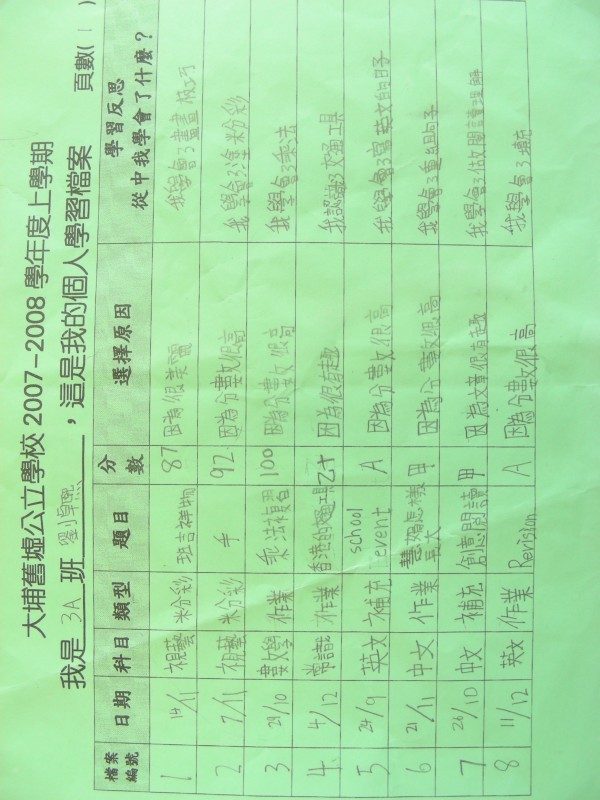 大埔舊墟公立學校 2007-2008 學年度上學期
我是 3A 班 劉卓熙 ,這是我的個人學習檔案 頁數( 1 )
檔案編號 日期 科目 類型 題目 分數 選擇原因 學習反思 從中我學會了什麼?
1 14/11 視藝 粉彩 班吉祥物 87 因為很美麗 我學會了畫畫技巧
2 7/11 視藝 粉彩 手 92 因為分數很高 我學會了塗粉彩
3 29/10 數學 作業 乘法複習 100 因為分數很高 我學會了乘法
4 4/12 常識 作業 香港的交通工具 乙+ 因為很有趣 我認識了交通工具
5 24/9 英文 補充 school event A 因為分數很高 我學會了寫英文的日子
6 21/11 中文 作業 怎樣長大 甲 因為分數很高 我學會了重組句子
7 26/10 中文 補充 創意閱讀 甲 因為文章很有趣 我學會了做閱讀理解
8 11/12 英文 作業 Revision A 因為分數很高 我學會了填充